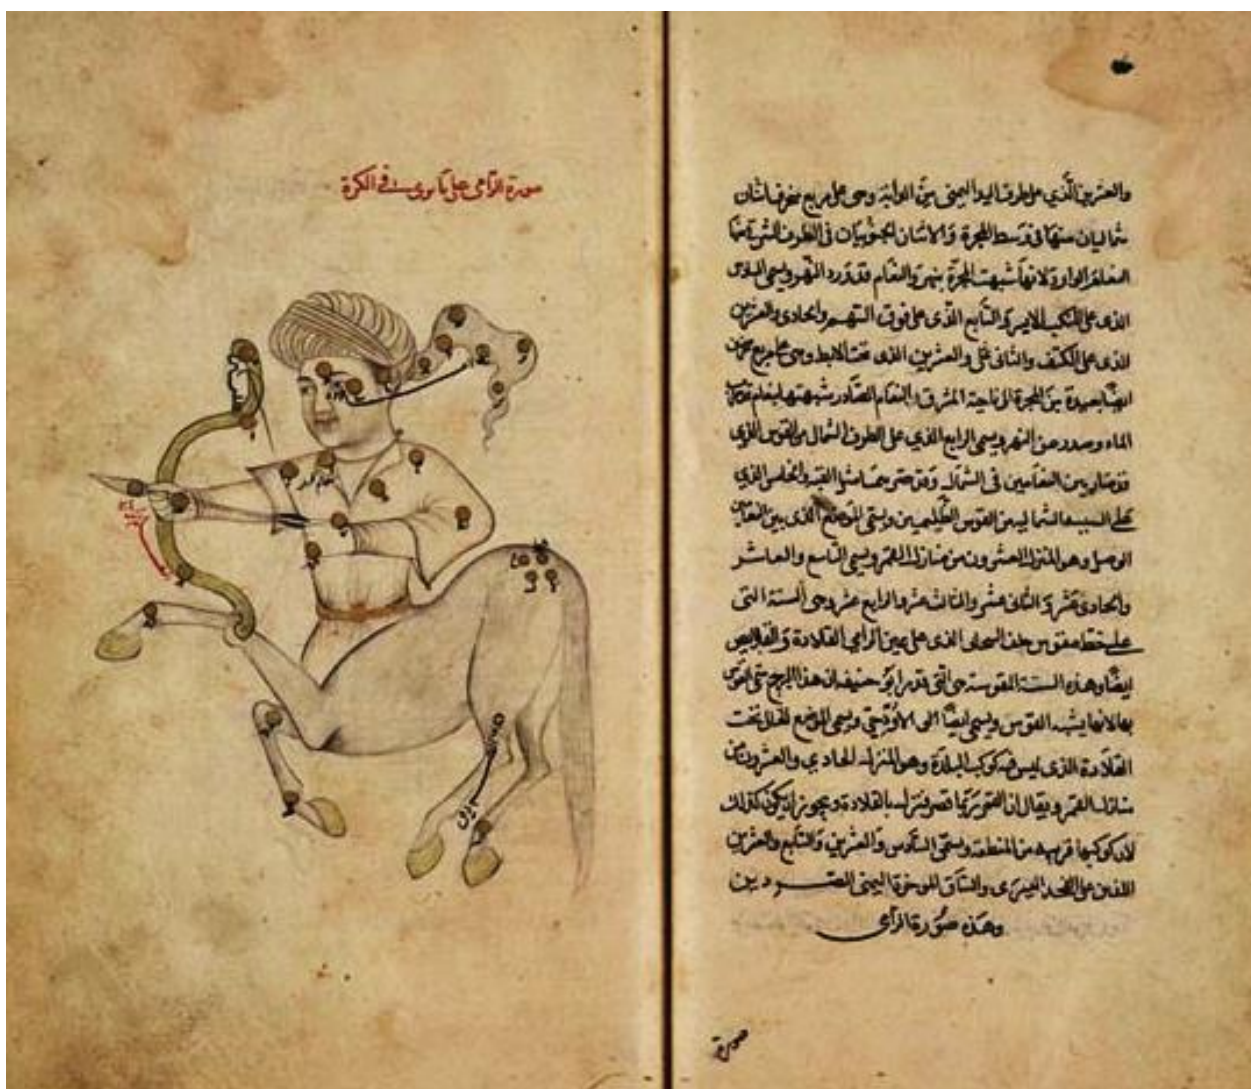 والعشرين الذي على طرف اليد اليمنى من الدابة وهي على مربع منحرف اثنان
شماليان منها في وسط المجرة والاثنان الجنوبيان في الطرف الشرقي منها
النعام الوارد لانها شبهت المجرة بنهر والنعام قد ورد النهر ويسمى
الذي على المنكب الايسر والسابع الذي على فوق السهم والحادي والعشرين
الذي على الكتف والثاني والعشرين الذي تحت الابط وهي على مربع منحرف
ايضا بعيدة من المجرة الى ناحية المشرق النعام الصادر شبهتها بنعام قد شرب
الماء وصدر عن النهر ويسمى الرابع الذي على الطرف الشمالي من القوس الذي
قد صار بين النعامين في الشمال
على السية الشمالية من القوس الظليمين ويسمى الموضع الذي بين النعامين
الوصل وهو المنزل العشرون من منازل القمر ويسمى التاسع والعاشر
والحادي عشر والثاني عشر والثالث عشر والرابع عشر وهي الستة التي
على خط مقوس خلف السحابي الذي على عين الرامي القلادة والقلايص
ايضا وهذه الستة المقوسة هي التي قدر ابو حنيفة ان هذا البرج سمي القوس
بها لانها يشبه القوس ويسمى ايضا الادحي ويسمى الموضع الخالي تحت
القلادة الذي ليس فيه كوكب البلدة وهو المنزل الحادي والعشرون من
منازل القمر ويقال ان القمر ربما قصر فينزل بالقلادة ويجوز ان يكون كذلك
لان كوكبها قريبة من المنطقة ويسمى السادس والعشرين والسابع والعشرين
اللذين على الفخذ اليسرى والساق الموخرة اليمنى الصردين
وهذه صورة الرامي
صورة
صورة الرامي على ما يرى في الكرة